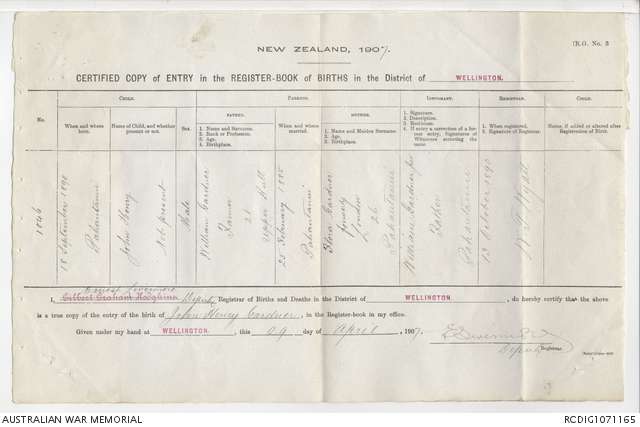 NEW ZEALAND, 1907.
(R.G. No. 3
CERTIFIED COPY OF ENTRY in the REGISTER-BOOK of BIRTHS in the District of WELLINGTON.
CHILD. PARENTS. INFORMANT. REGISTRAR. CHILD.
FATHER. MOTHER.
No.
When and where born.
Name of Child, and whether present or not.
Sex.
1. Name and Surname.
2. Rank or Profession.
3. Age.
4. Birthplace.
When and where married.
1. Name and Maiden Surname.
2. Age.
3. Birthplace.
1. Signature.
2. Description.
3. Residence.
4. If entry a correction of a former entry, Signatures of Witnesses attesting the same.
1. When registered.
2. Signature of Registrar.
Name, if added or altered after Registration of Birth.
18 September 1890
Pahautanui
John Henry
Not present
Male
William Gardner
21
Upper Hutt
25 February
Pahautanui
Flora Gardner
formerly
26
Pahautanui
William Gardner
Father
Pahautanui
October 1890
I, Gilbert Graham Hodgkins Deputy Registrar of Births and Deaths in the District of WELLINGTON, do hereby certify that the above
is a true copy of the entry of the birth of John Henry Gardner, in the Register-book in my office.
Given under my hand at WELLINGTON, this 29 day of April, 1907.
Deputy Registrar.
AUSTRALIAN WAR MEMORIAL
RCDIG1071165